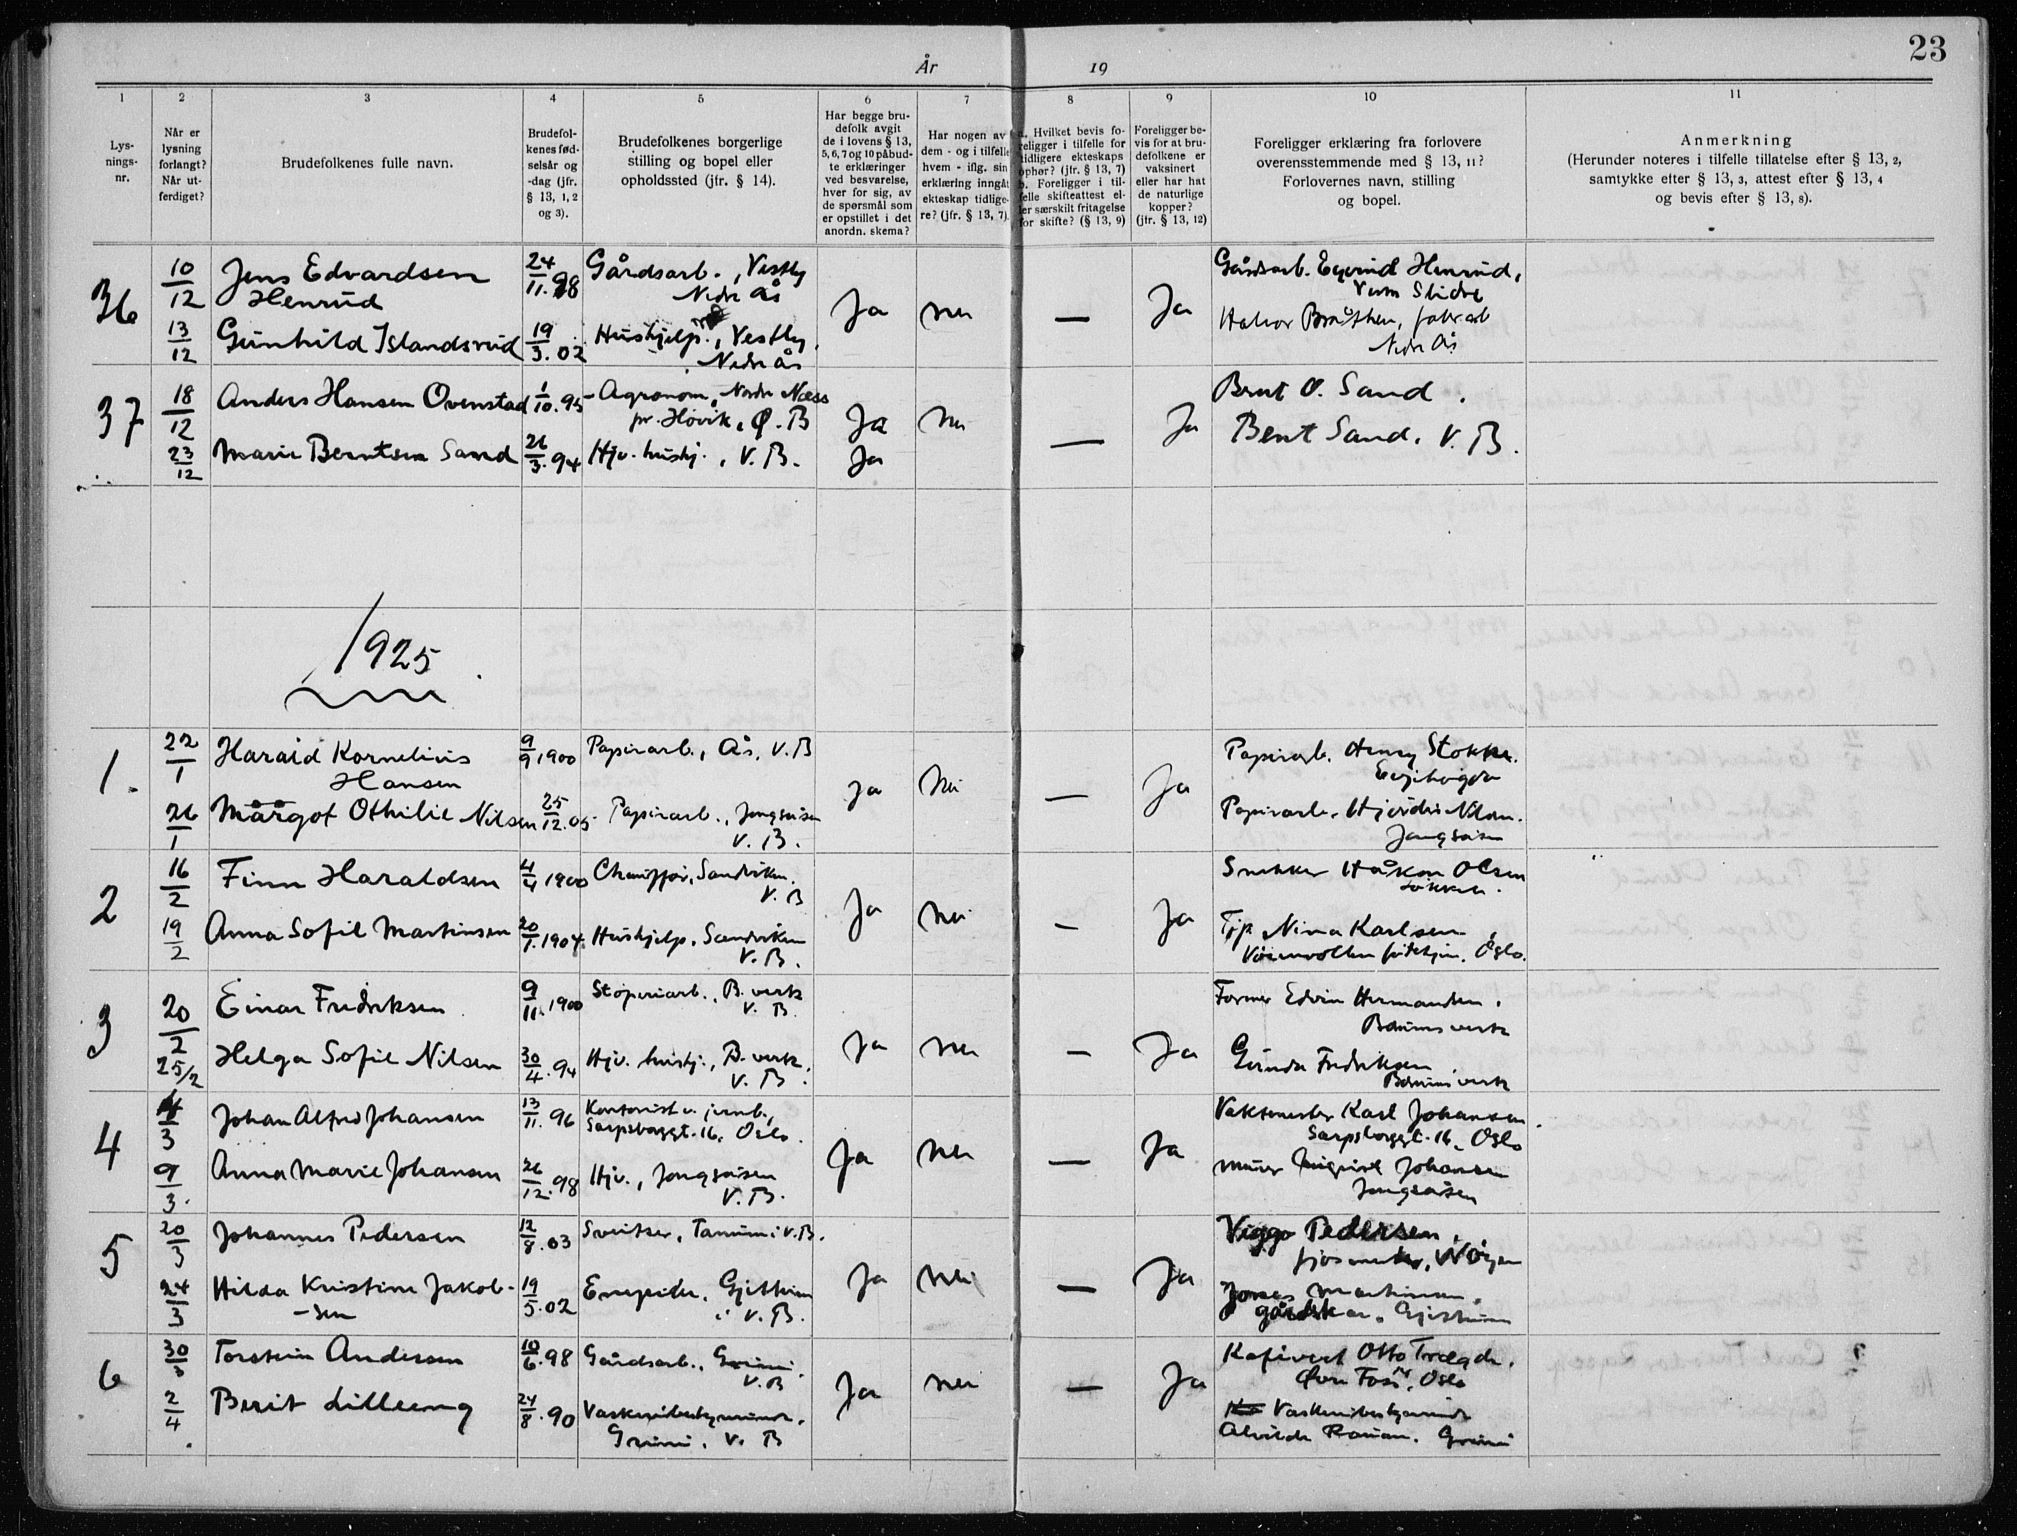 23
År 19
1 2 3 4 5 6 7 8 9 10 11
Lys-
nings-
nr.
Når er
lysning
forlangt?
Når ut-
ferdiget?
Brudefolkenes fulle navn.
Brudefol-
kenes fød-
selsår og
-dag (jfr.
§ 13, 1, 2
og 3).
Brudefolkenes borgerlige
stilling og bopel eller
opholdssted (jfr. § 14).
Har begge bru-
defolk avgit
de i lovens § 13,
5, 6, 7 og 10 påbud-
te erklæringer
ved besvarelse,
hver for sig, av
de spørsmål som
er opstillet i det
anordn. skema?
Har nogen av
dem - og i tilfelle
hvem - iflg. sin
erklæring inngått
ekteskap tidlige-
re? (jfr. § 13, 7).
a. Hvilket bevis fo-
religger i tilfelle for
tidligere ekteskaps
ophør? (jfr. § 13, 7)
b. Foreligger i til-
felle skifteattest el-
ler særskilt fritagelse
for skifte? (§ 13, 9)
Foreligger be-
vis for at bru-
defolkene er
vaksinert
eller har hat
de naturlige
kopper?
(jfr. § 13, 12)
Foreligger erklæring fra forlovere
overensstemmende med § 13, 11?
Forlovernes navn, stilling
og bopel.
Anmerkning
(Herunder noteres i tilfelle tillatelse efter § 13, 2,
samtykke efter § 13, 3, attest efter § 13, 4
og bevis efter § 13, 8).
36 10/12 Jens Edvardsen 24/11.98 Gårdsarb., Vestby Gårdsarb. Eyvind Henrud,
Henrud Nedre Ås Ja nei — Ja Vestre Slidre
13/12 Gunhild Islandsrud 19/3.02 Hushjelp., Vestby, Halvor Bråthen, fabr.arb
Nedre Ås Nedre Ås
37 18/12 Anders Hansen Ovenstad 1/10.95 Agronom, Nordre Næss Ja nei — Ja Bent O. Sand.
pr. Høvik, Ø. B
23/12 Marie Berntsen Sand 26/3.94 Hjv. hushj., V. B. Ja Bent Sand, V. B.
1925
1. 22/1 Harald Kornelius 9/9 1900 Papirarb., Ås, V. B Papirarb. Henry Stokke.
Hansen Ja nei — Ja
26/1 Margot Othilie Nilsen 25/12.05 Papirarb., Jongsåsen Papirarb. Hjørdis Nilsen.
V. B. Jongsåsen
2 16/2 Finn Haraldsen 4/4 1900 Chauffør, Sandviken, Snekker Håkon Olsen
V. B Løkken.
Ja nei — Ja
19/2 Anna Sofie Martinsen 20/1.1904 Hushjelp, Sandviken Tjp. Nina Karlsen,
V. B. Oslo.
3 20/2 Einar Fredriksen 9/11.1900 Støperiarb., B. verk Former Edvin Hermansen,
V. B. Bærums verk
Ja nei — Ja
25/2 Helga Sofie Nilsen 30/4.94 Hjv. hushj., B. verk, Gunda Fredriksen
V. B. Bærums verk
4 4/3 Johan Alfred Johansen 13/11.96 Kontorist v. jernb., Vaktmester Karl Johansen
Sarpsborggt. 16, Oslo. Sarpsborggt. 16, Oslo
Ja nei — Ja
9/3. Anna Marie Johansen 26/12.98 Hjv., Jongsåsen Murer Johansen
V. B. Jongsåsen
5 20/3 Johannes Pedersen 12/8.03 Sveitser, Tanum i V. B. Viggo Pedersen,
fjøsmester,
Ja nei — Ja
24/3 Hilda Kristine Jakob- 19/5.02 Gjettum Martinsen,
-sen i V. B. gårdskar, Gjettum
6 30/3 Torstein Andersen 10/6.98 Gårdsarb., Grini Kafévert Otto Trægde,
V. B Øvre Foss, Oslo
Ja nei — Ja
2/4 Berit Lilleeng 24/8.90 Vaskeribestyrerinde, Vaskeribestyrerinde
Grini, V. B Alvilde Grini